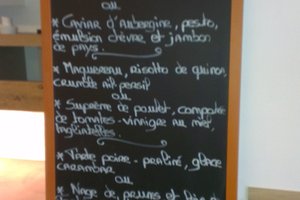 ou
* Caviar d'Aubergine, pesto,
émulsion chèvre et jambon
de pays.
* Maquereau, risotto de quinoa,
crumble ail persil
ou
* Suprême de poulet, compotée
de tomates - vinaigre au miel,
tagliatelles.
* Tarte poire - praliné, glace
carambar
ou
* Nage de prunes et